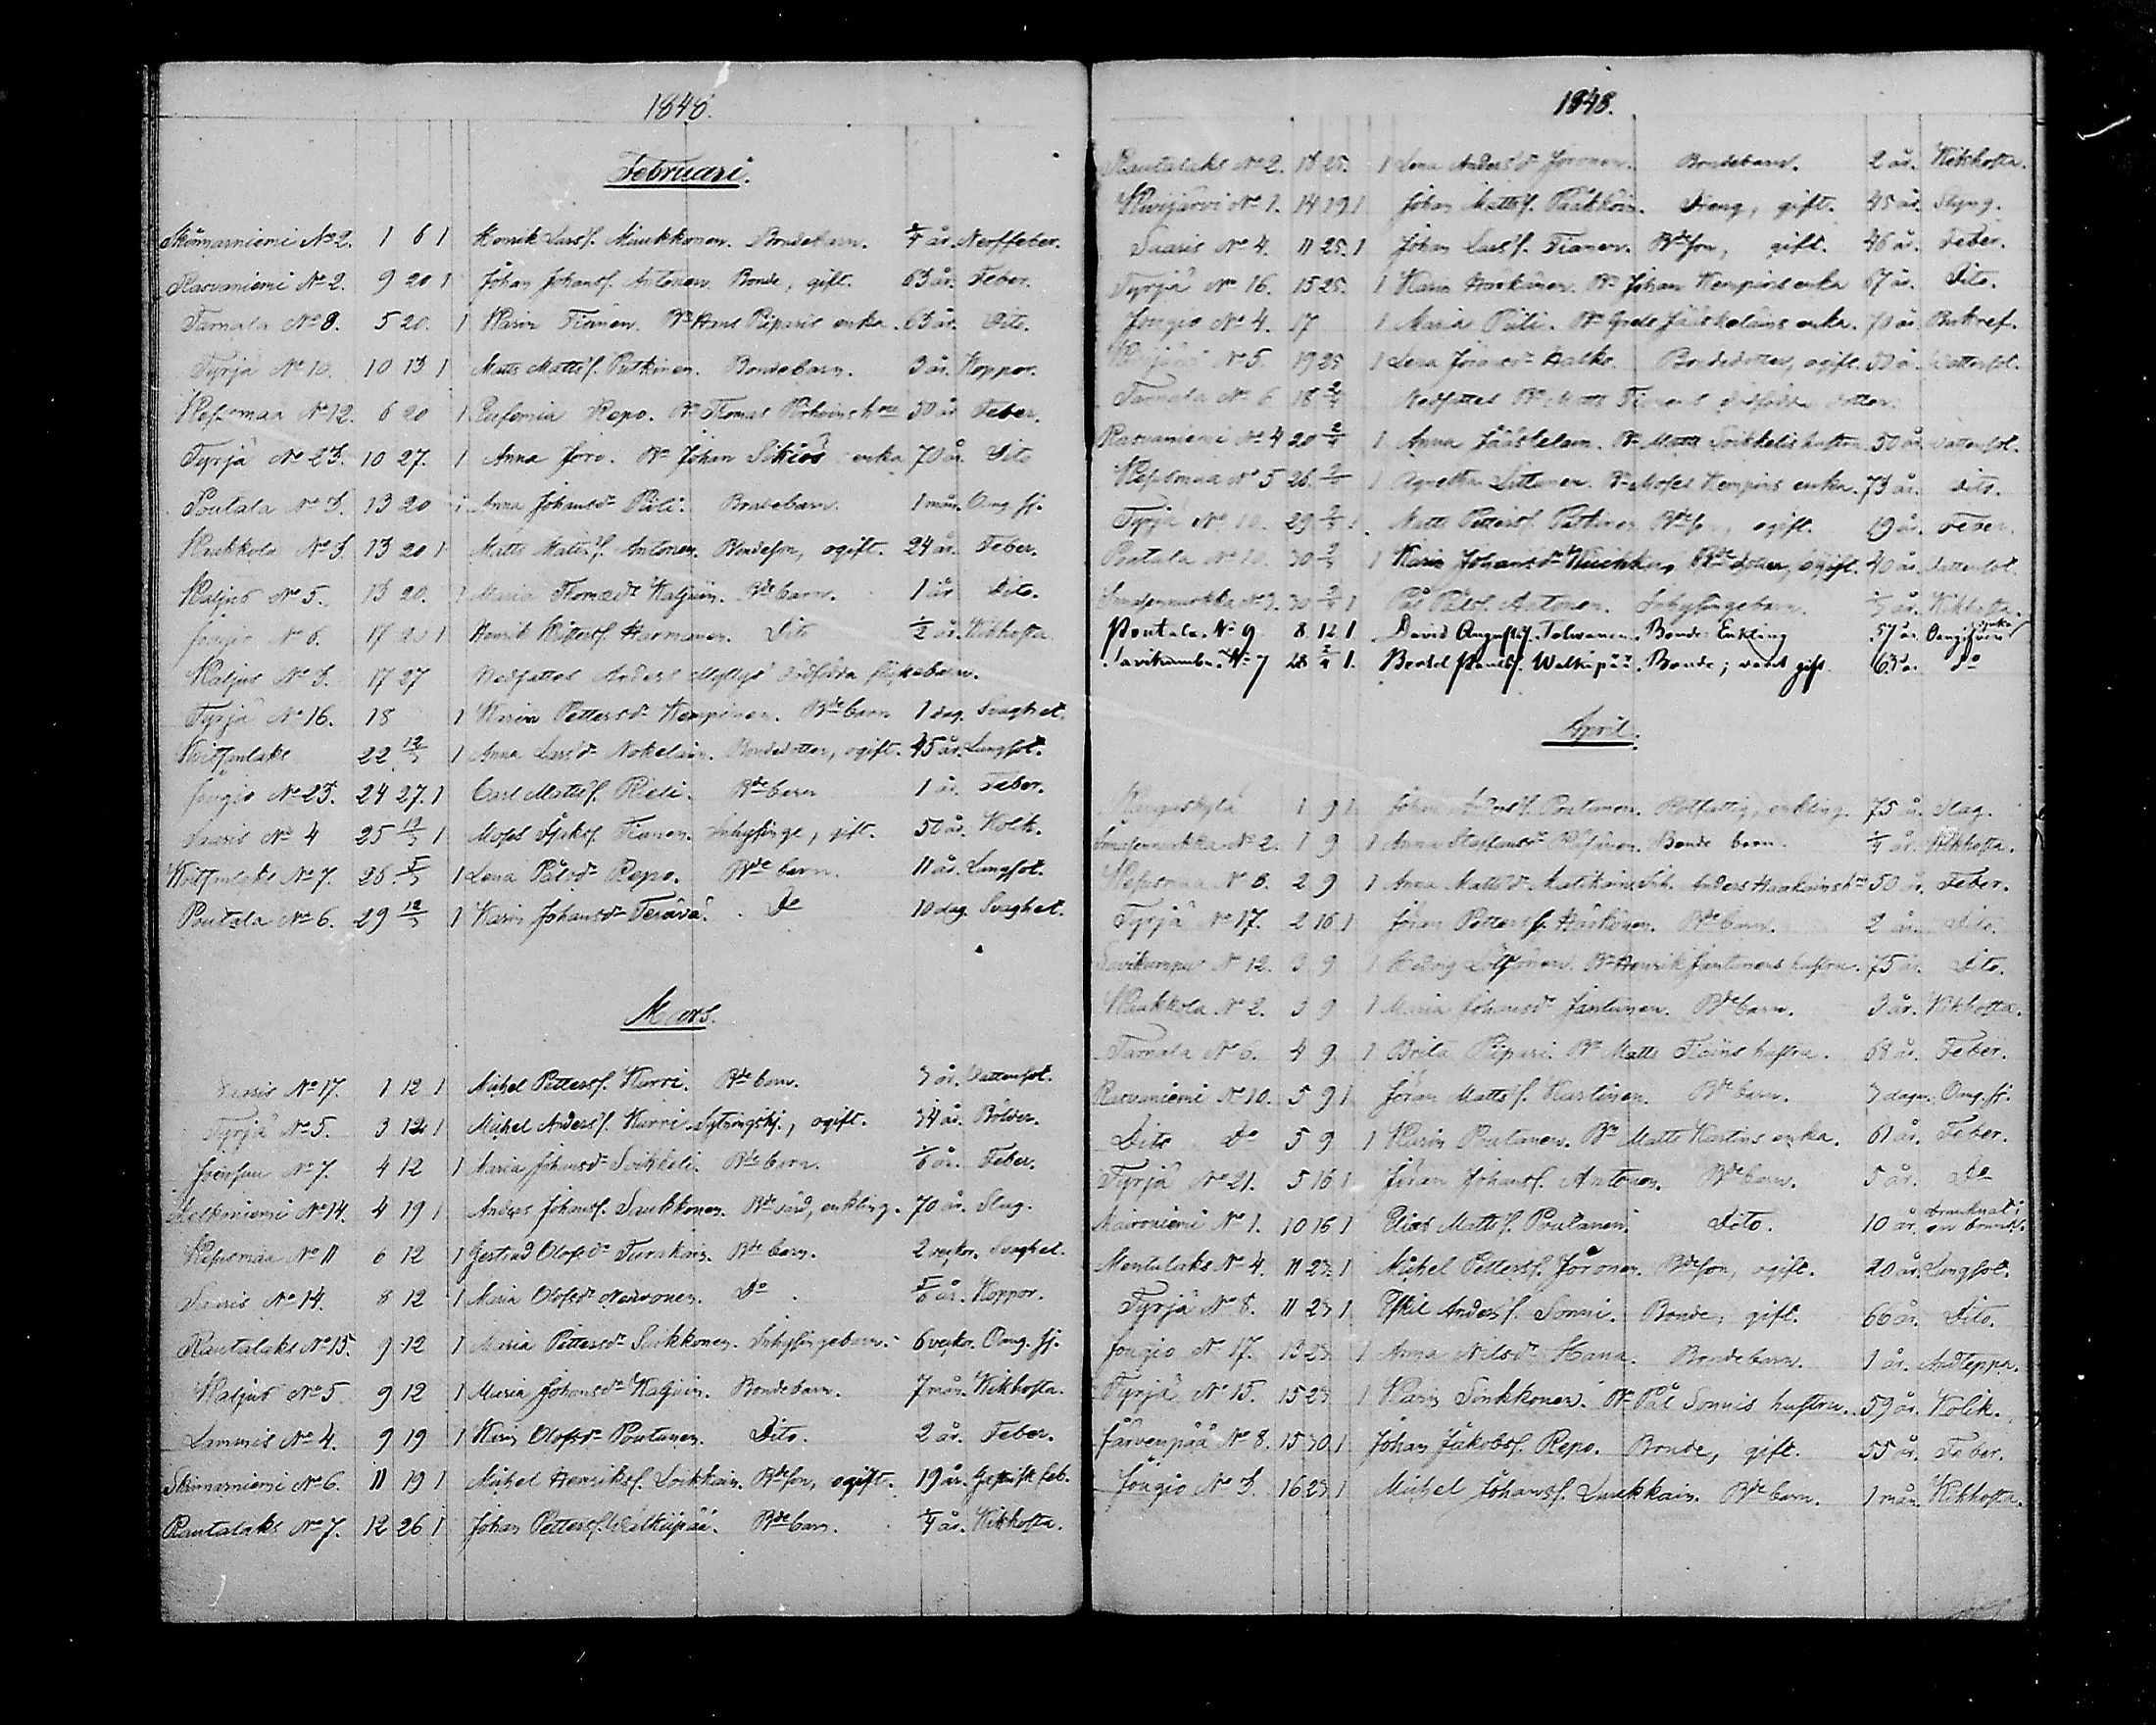 1848.
Februari.
Skinnarniemi No 2. 1 6 1 Henrik Larsf. Muukkonen. Bondebarn. 1/4 år. Nerffeber.
Rasvaniemi No 2. 9 20 1 Johan Johansf. Antonen. Bonde, gift. 63 år. Feber.
Tarnala No 8. 5 20. 1 Karin Tianen. Bn Piiparis enka. 63 år. Dito.
Tyrjä No 10. 10 13 1 Matts Mattsf. Putkinen. Bondebarn. 3 år. Koppor.
No 12. 6 20 1 Eufemia Repo. Bn Thomas hru 50 år Feber.
Tyrjä No 23. 10 27. 1 Anna Joro. Bn Johan enka 70 år. Dito
Poutala No 3. 13 20 1 Anna Johansdr Piili. Bondebarn. 1 mån. Oang. sj.
Kaukkola No 3. 13 20 1 Matts Mattsf. Antonen. Bondeson, ogift. 24 år. Feber.
Kaljus No 5. 13 20. 1 Maria Thomædr Kaljuin. Bde barn. 1 år Dito.
Jougio No 6. 17 20 1 Henrik Pettersf. Harmanen. Dito 1/2 år. Kikhosta
Kaljus No 3. 17 27 Nedsattes Anders Myllys' dödfödda flickebarn.
Tyrjä No 16. 18 1 Karin Pettersdr Kempinen. Bde barn 1 dag. Svaghet.
22 12/3 1 Anna Larsdr Nokelain. Bondedotter, ogift. 45 år. Lungsot.
Jougio No 23. 24 27. 1 Carl Mattsf. Piili. Bde barn 1 år. Feber.
Saaris No 4 25 12/3 1 Moses Isaksf. Tianen. Inhysinge, gift. 50 år. Kolik.
No 7. 26. 5/3 1 Lena Pålsdr Repo. Bde barn. 11 år. Lungsot.
Poutala No 6. 29 12/3 1 Karin Johansdr Terävä. Do 10 dag. Svaghet.
Mars.
Saaris No 17. 1 12 1 Michel Pettersf. Kurri. Bde barn. 3 år. Vattensot.
Tyrjä No 5. 3 12 1 Michel Andersf. Kurri. Sytningshj., ogift. 34 år. Bölder.
No 7. 4 12 1 Maria Johansdr Soikkeli. Bde barn. 1/6 år. Feber.
No 14. 4 19 1 Anders Johansf. Saukkonen. Bde enkling. 70 år. Slag.
No 11 6 12 1 Gertrud Olofsdr Turakain. Bde barn. 2 veckor. Svaghet.
Saaris No 14. 8 12 1 Maria Olofsdr Neuvonen. Do 5/6 år. Koppor.
Rantalaks No 15. 9 12 1 Maria Pettersdr Saikkonen. Inhysingebarn. 6 veckor. Oang. sj.
Kaljus No 5 9 12 1 Maria Johansdr Kaljuin. Bondebarn. 7 mån. Kikhosta.
No 4. 9 19 1 Karin Olofsdr Poutanen. Dito. 2 år. Feber.
Skinnarniemi No 6. 11 19 1 Michel Henriksf. Loikkain. Bde son, ogift. 19 år. feb.
Rantalaks No 7. 12 26 1 Johan Pettersf. Walkiipää. Bde barn. 1/4 år. Kikhosta.
1848.
Rantalaks No 2. 13 25. 1 Lena Andersdr Joronen. Bondebarn. 2 år. Kikhosta.
Kivijärvi No 1. 14 19 1 Johan Mattsf. Pääkköin. Dreng, gift. 45 år. Styng.
Saaris No 4. 11 25. 1 Johan Larsf. Tianen. Bde son, gift. 46 år. Feber.
Tyrjä No 16. 15 25. 1 Karin Härkönen. Bn Johan Kempins enka 67 år. Dito.
Jougio No 4. 17 1 Maria Piili. Bn Jääskeläins enka. 70 år.
No 5 19 25 1 Lena Jöransdr Bondedotter, ogift. Vattensot.
Tarnala No 6 18 2/4 Nedsattes Bn Matts Tianens dödfödda dotter.
Rasvaniemi No 4 20 2/4 1 Anna Jääskelain. Bn Matts Soikkelis hustru. 50 år. Vattensot.
No 5 26. 2/4 1 Agnetha Littunen. Bn Moses Kempins enka. 73 år. Dito.
Tyrjä No 10. 29 2/4 1. Matts Pettersf. Putkinen Bde son, ogift. 19 år. Feber.
Poutala No 10. 30 2/4 1 Karin Johansdr Bde dotter, ogift. 40 år. Vattensot.
No 3. 30 2/4 1 Pål Pålsf. Antonen. Inhysingebarn. år. Kikhosta.
Poutala No 9 8 12 1. David Augustsf. Tolwanen. Bonde Enkling 57 år. Oangifven sjuka
No 7 28 2/4 1. Bertel Paulsf. Walkiapää. Bonde; warit gift. 63 år. do
April.
Kanguskylä 1 9 1 Johan Poutanen. Rotfattig, enkling. 75 år. Slag.
No 2. 1 9 1 Anna Staffansdr Bonde barn. 1/4 år. Kikhosta.
No 6. 2 9 1 Anna Mattsdr Matikain. Inh. Anders hru 50 år. Feber.
Tyrjä No 17. 2 16 1 Jöran Pettersf. Härkönen. Bde barn. 2 år. Dito.
Savikumpu No 12. 3 9 1 Hedvig Bn Henrik Jantunens hustru. 75 år. Dito.
Kaukkola No 2. 3 9 1 Maria Johansdr Jantunen. Bde barn. 3 år. Kikhosta.
Tarnala No 6. 4 9. 1 Brita Piipari. Bn Matts Tiains hustru. 68 år. Feber.
Rasvaniemi No 10. 5 9 1. Jöran Mattsf. Kastinen. Bde barn. 3 dagar. Oang. sj.
Dito Do 5 9 1 Karin Putanen. Bn Matts Kastins enka. 61 år. Feber.
Tyrjä No 21. 5 16 1 Jöran Johansf. Antonen. Bde barn. 5 år. Do
No 1. 10 16 1 Elias Mattsf. Poutanen. Dito. 10 år. drunknat i en brunn.
Mentulaks No 4. 11 23. 1 Michel Pettersf. Joronen. Bde son, ogift. 20 år. Lungsot.
Tyrjä No 8. 11 23 1 Eskil Andersf. Sonni. Bonde, gift. 66 år. Dito.
Jougio No 17. 13 23. 1 Anna Nilsdr Bondebarn. 1 år. Andteppa.
Tyrjä No 15. 15 23 1 Karin Sinkkonen. Bn Pål Sonnis hustru. 59 år. Kolik.
Järvenpää No 8. 15 30 1 Johan Jakobsf. Repo. Bonde, gift. 55 år. Feber.
Jougio No 3. 16 23 1 Michel Johansf. Luukkain. Bde barn. 1 mån. Kikhosta.